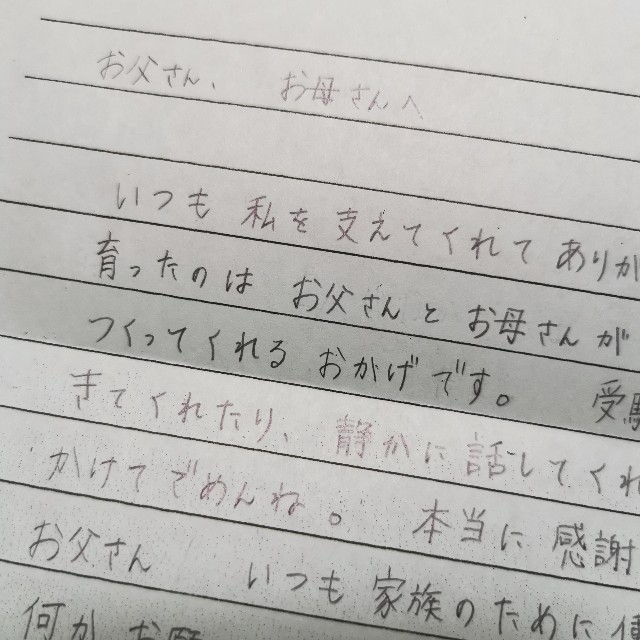 お父さん、お母さんへ
いつも私を支えてくれてありが
育ったのは お父さんとお母さんが
つくってくれるおかげです。 受験
きてくれたり、静かに話してくれ
かけてごめんね。 本当に感謝
お父さん いつも家族のために
何か お